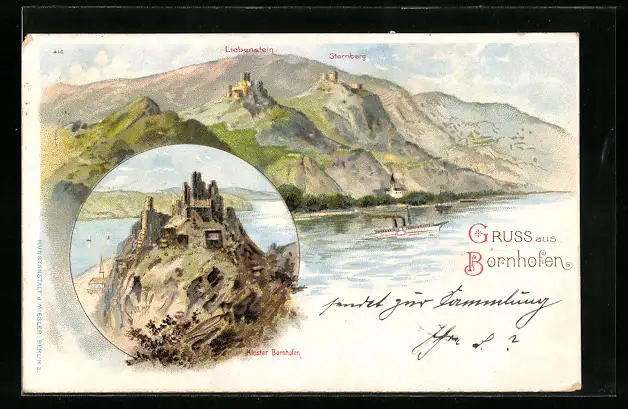 416
Liebenstein
Sternberg
GRUSS aus
Bornhofen
sendet zur Sammlung
Ihre S. ?
Kloster Bornhofen
KUNSTANSTALT J. MIESLER, BERLIN S.